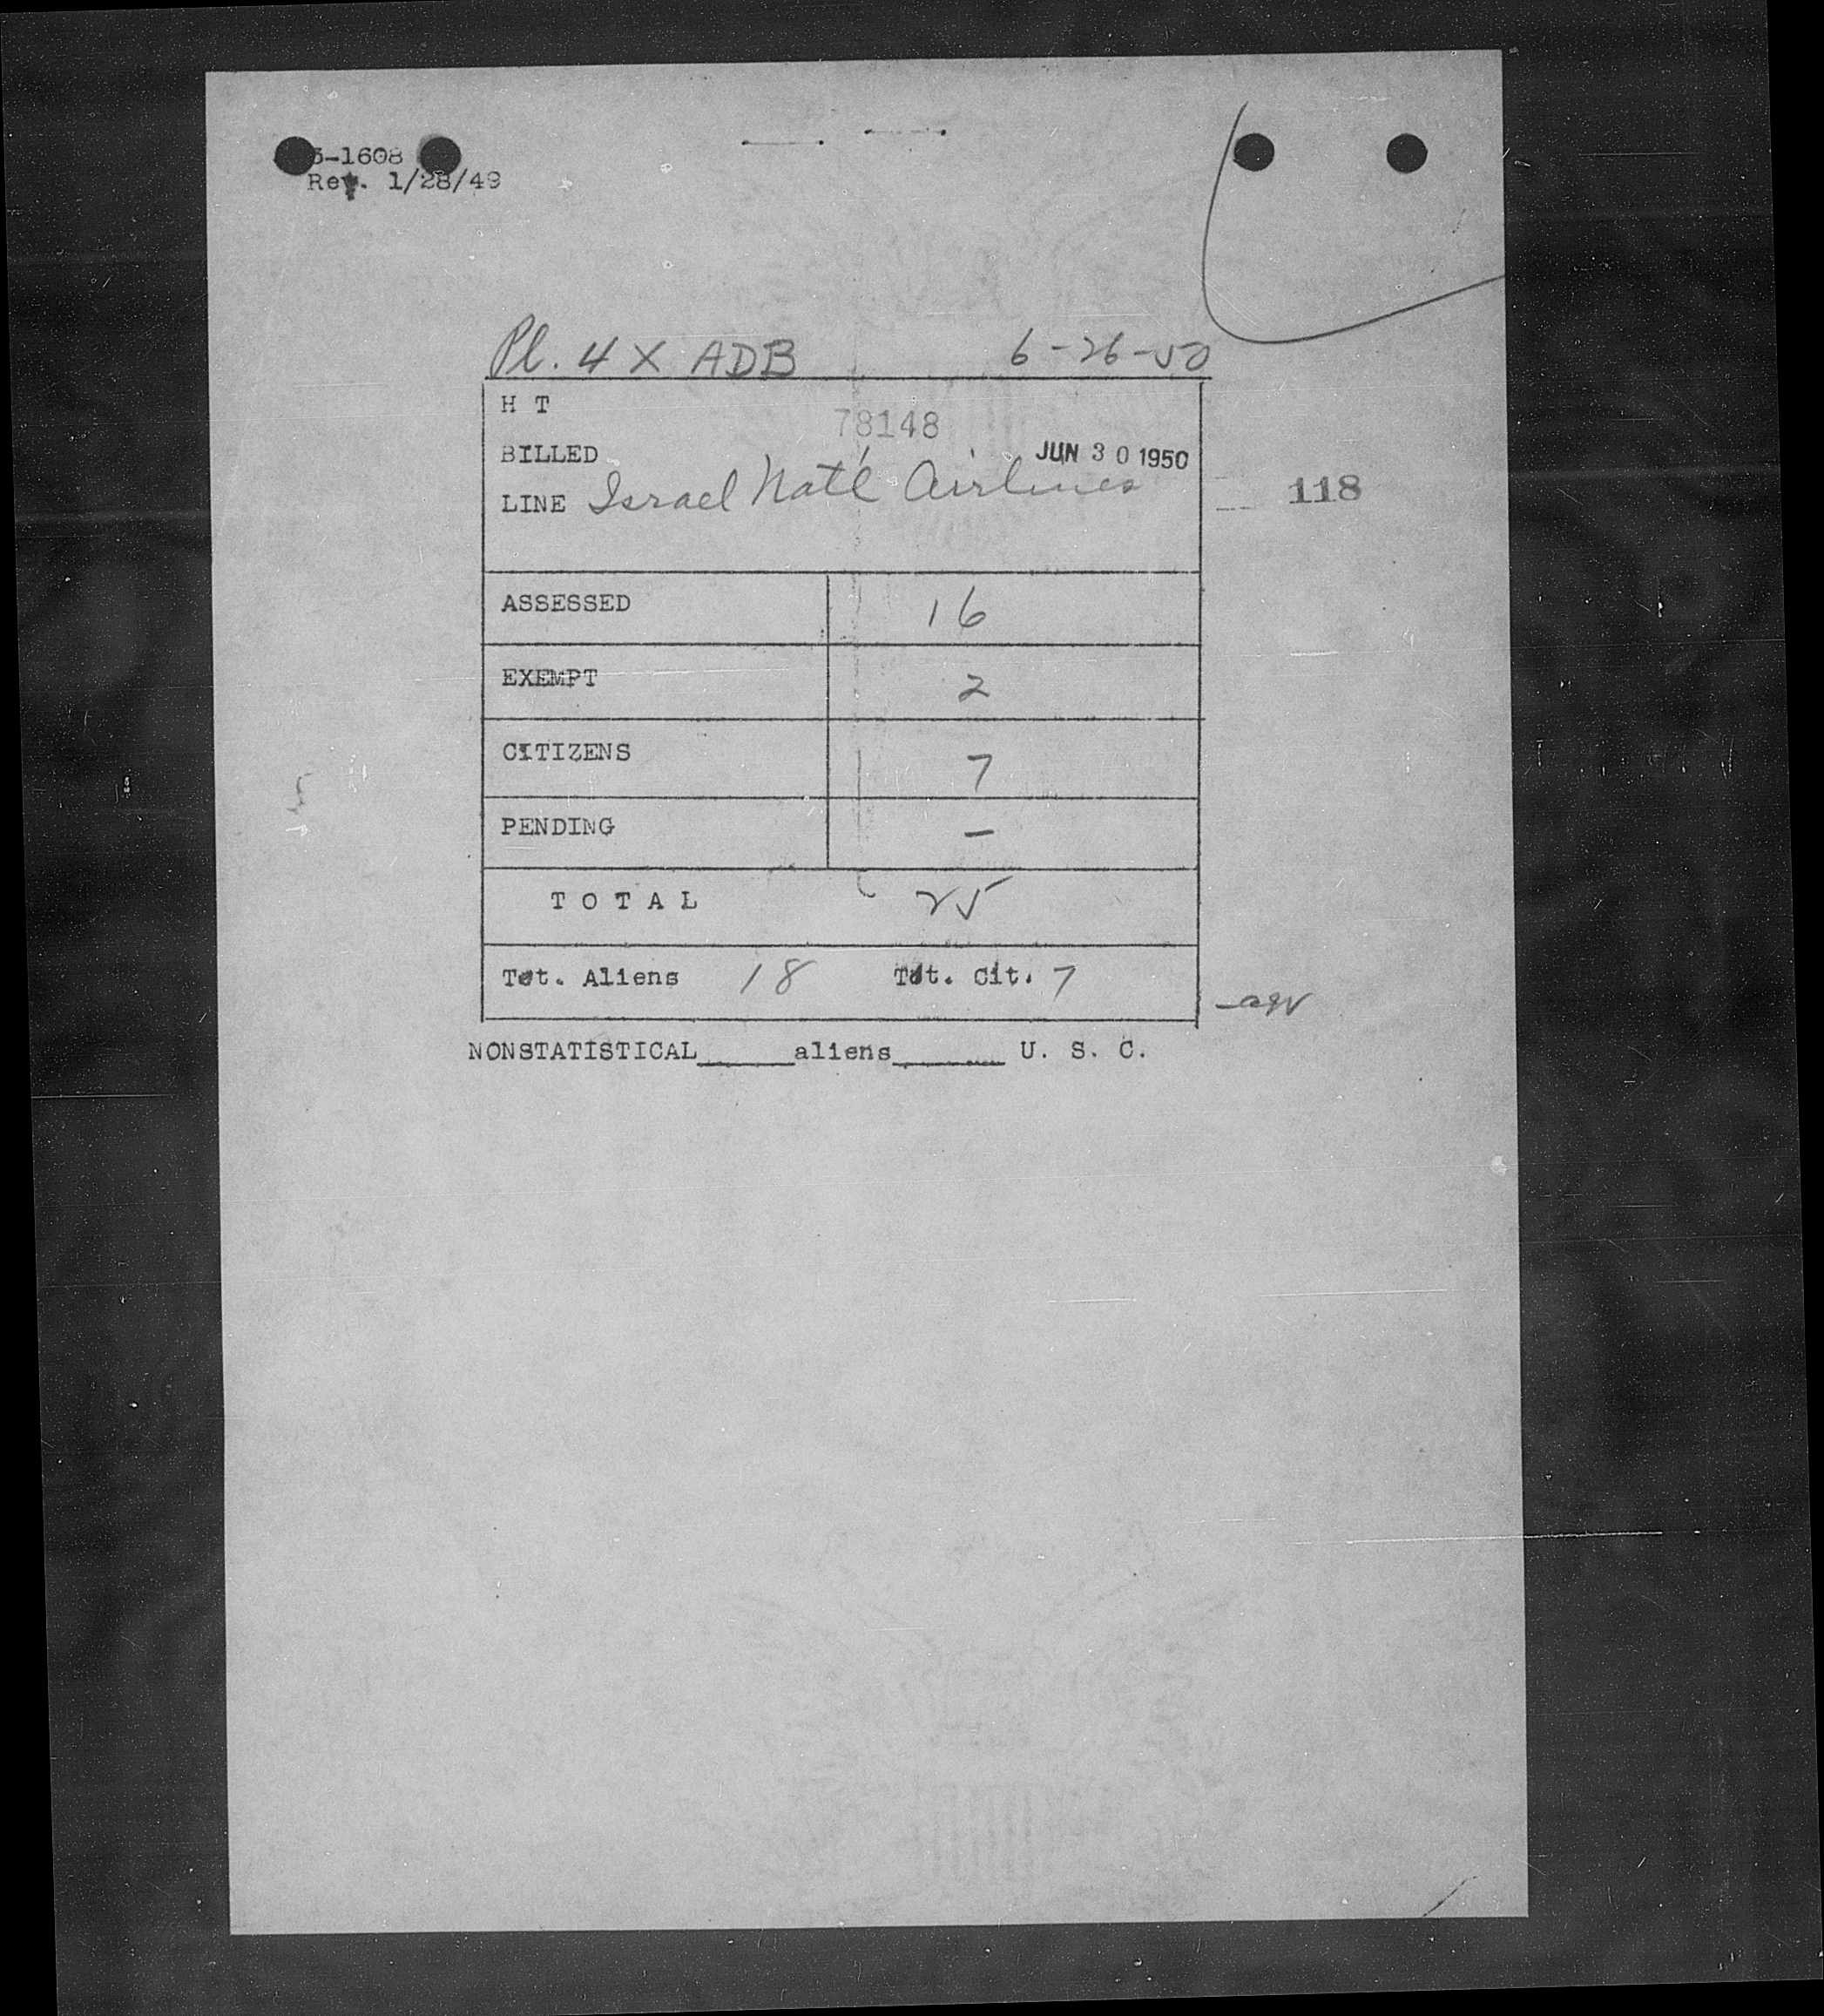 5-1608
Rev. 1/28/49
Pl. 4 X ADB 6-26-50
H T
78148
BILLED JUN 30 1950
LINE Israel Nat'l Airlines
118
ASSESSED 16
EXEMPT 2
CITIZENS 7
PENDING —
TOTAL 25
Tot. Aliens 18 Tot. Cit. 7
NONSTATISTICAL_____aliens_____ U. S. C.